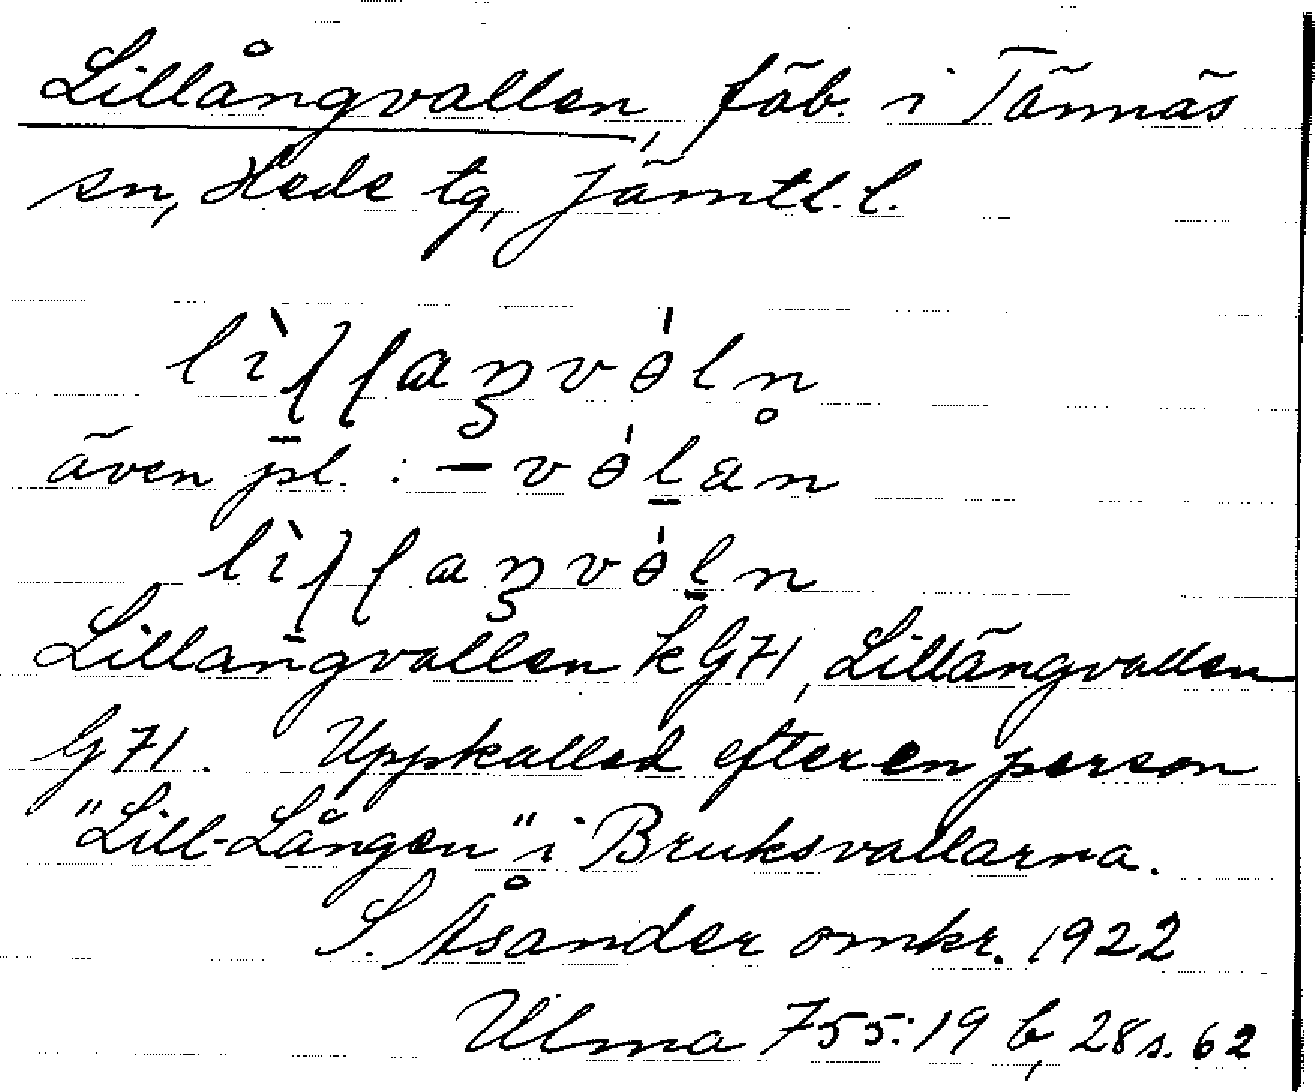 Lillångvallen, fäb. i Tännäs
sn, Hede tg, Jämtl. l.
även pl. : – vɵ́l̠an
Lillangvallen k G71, Lillängvallen
G71. Uppkallad efter en person
"Lill-Lången" i Bruksvallarna.
S. Åsander omkr. 1922
Ulma 755:19 b, 28 s. 62